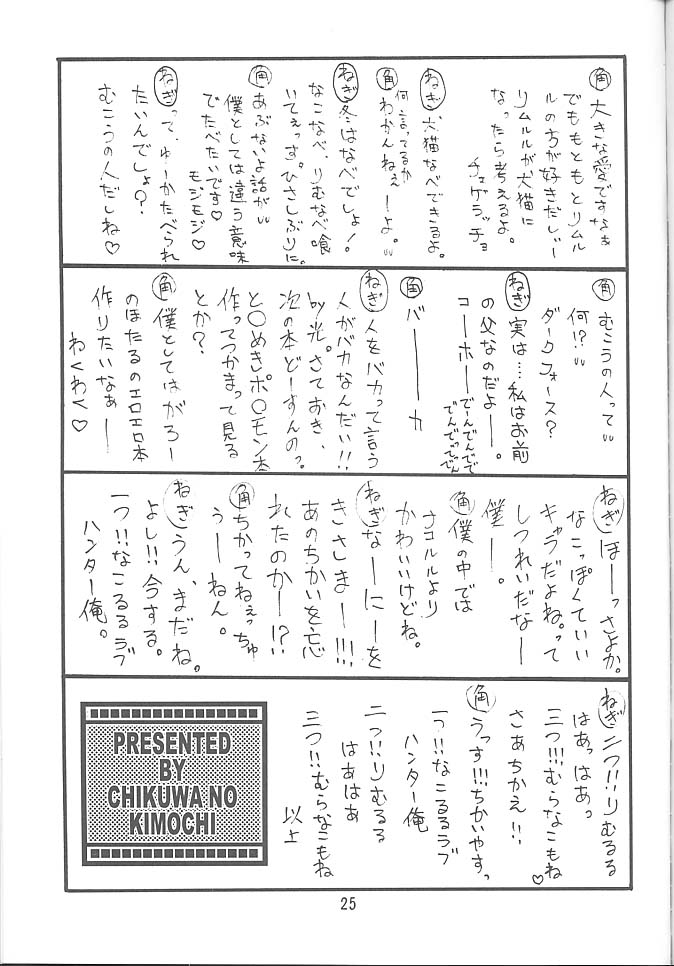 角 大きな愛ですなぁ
でももともとリムル
ルの方が好きだしー
リムルルが犬猫に
なったら考えるよ。
チェゲラッチョ
ねぎ 犬猫なべできるよ。
角 何言ってるか
わかんねぇーよ。
ねぎ 冬はなべでしょ!
なこなべ、りむなべ喰
いてぇっす。ひさしぶりに。
角 あぶないよ話が
僕としては違う意味
でたべたいです♡
モジモジ♡
ねぎ って、ゆーかたべられ
たいんでしょ?
むこうの人だしね♡
角 むこうの人って
何!?
ダークフォース?
ねぎ 実は…私はお前
の父なのだよー。
コーホー でーんでんでんで
でんでっでんでっ
角 バーーーカ
ねぎ 人をバカって言う
人がバカなんだい!!
by光。さておき、
次の本どーすんの?
と〇めきポ〇モン本
作ってつかまって見る
とか?
角 僕としてはがろー
のほたるのエロエロ本
作りたいなぁー
わくわく♡
ねぎ ほーっさよか。
なこっぽくていい
キャラだよね。って
しつれいだなー
僕ー。
角 僕の中では
ナコルルより
かわいいけどね。
ねぎ なーにーを
きさしまー!!!
あのちかいを忘
れたのかー!?
角 ちかってねぇっちゅ
うーねん。
ねぎ うん、まだね。
よし!!今する。
一つ!!なこるるラブ
ハンター俺。
ねぎ 二つ!!りむるる
はあっはぁっ
三つ!!!むらなこもね♡
さあちかえ!!
角 うっす!!!ちかいやすっ
一っ!!なこるるラブ
ハンター俺
二っ!!りむるる
はあはあ
三つ!!むらなこもね
以上
PRESENTED
BY
CHIKUWA NO
KIMOCHI
25